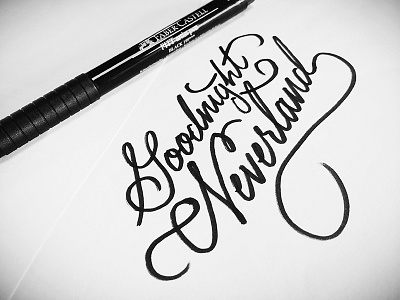 FABER-CASTELL
Goodnight
Neverland